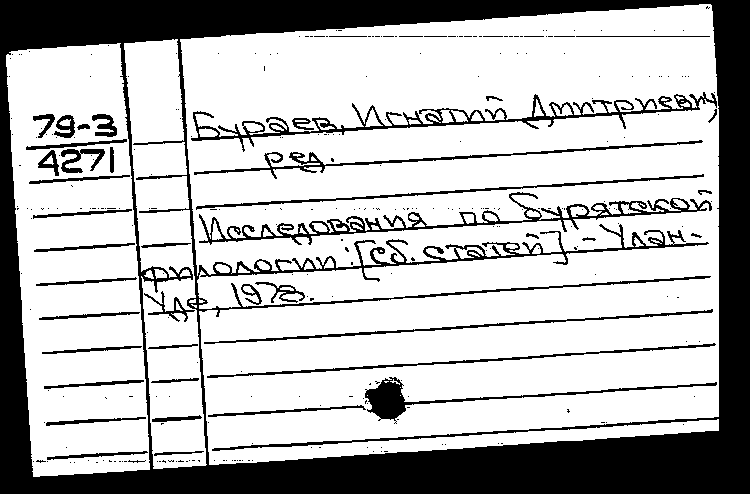 79-3
4271
Бураев, Игнатий Дмитриевич
ред.
Исследования по бурятской
филологии: [сб. статей]. - Улан-
Удэ, 1978.